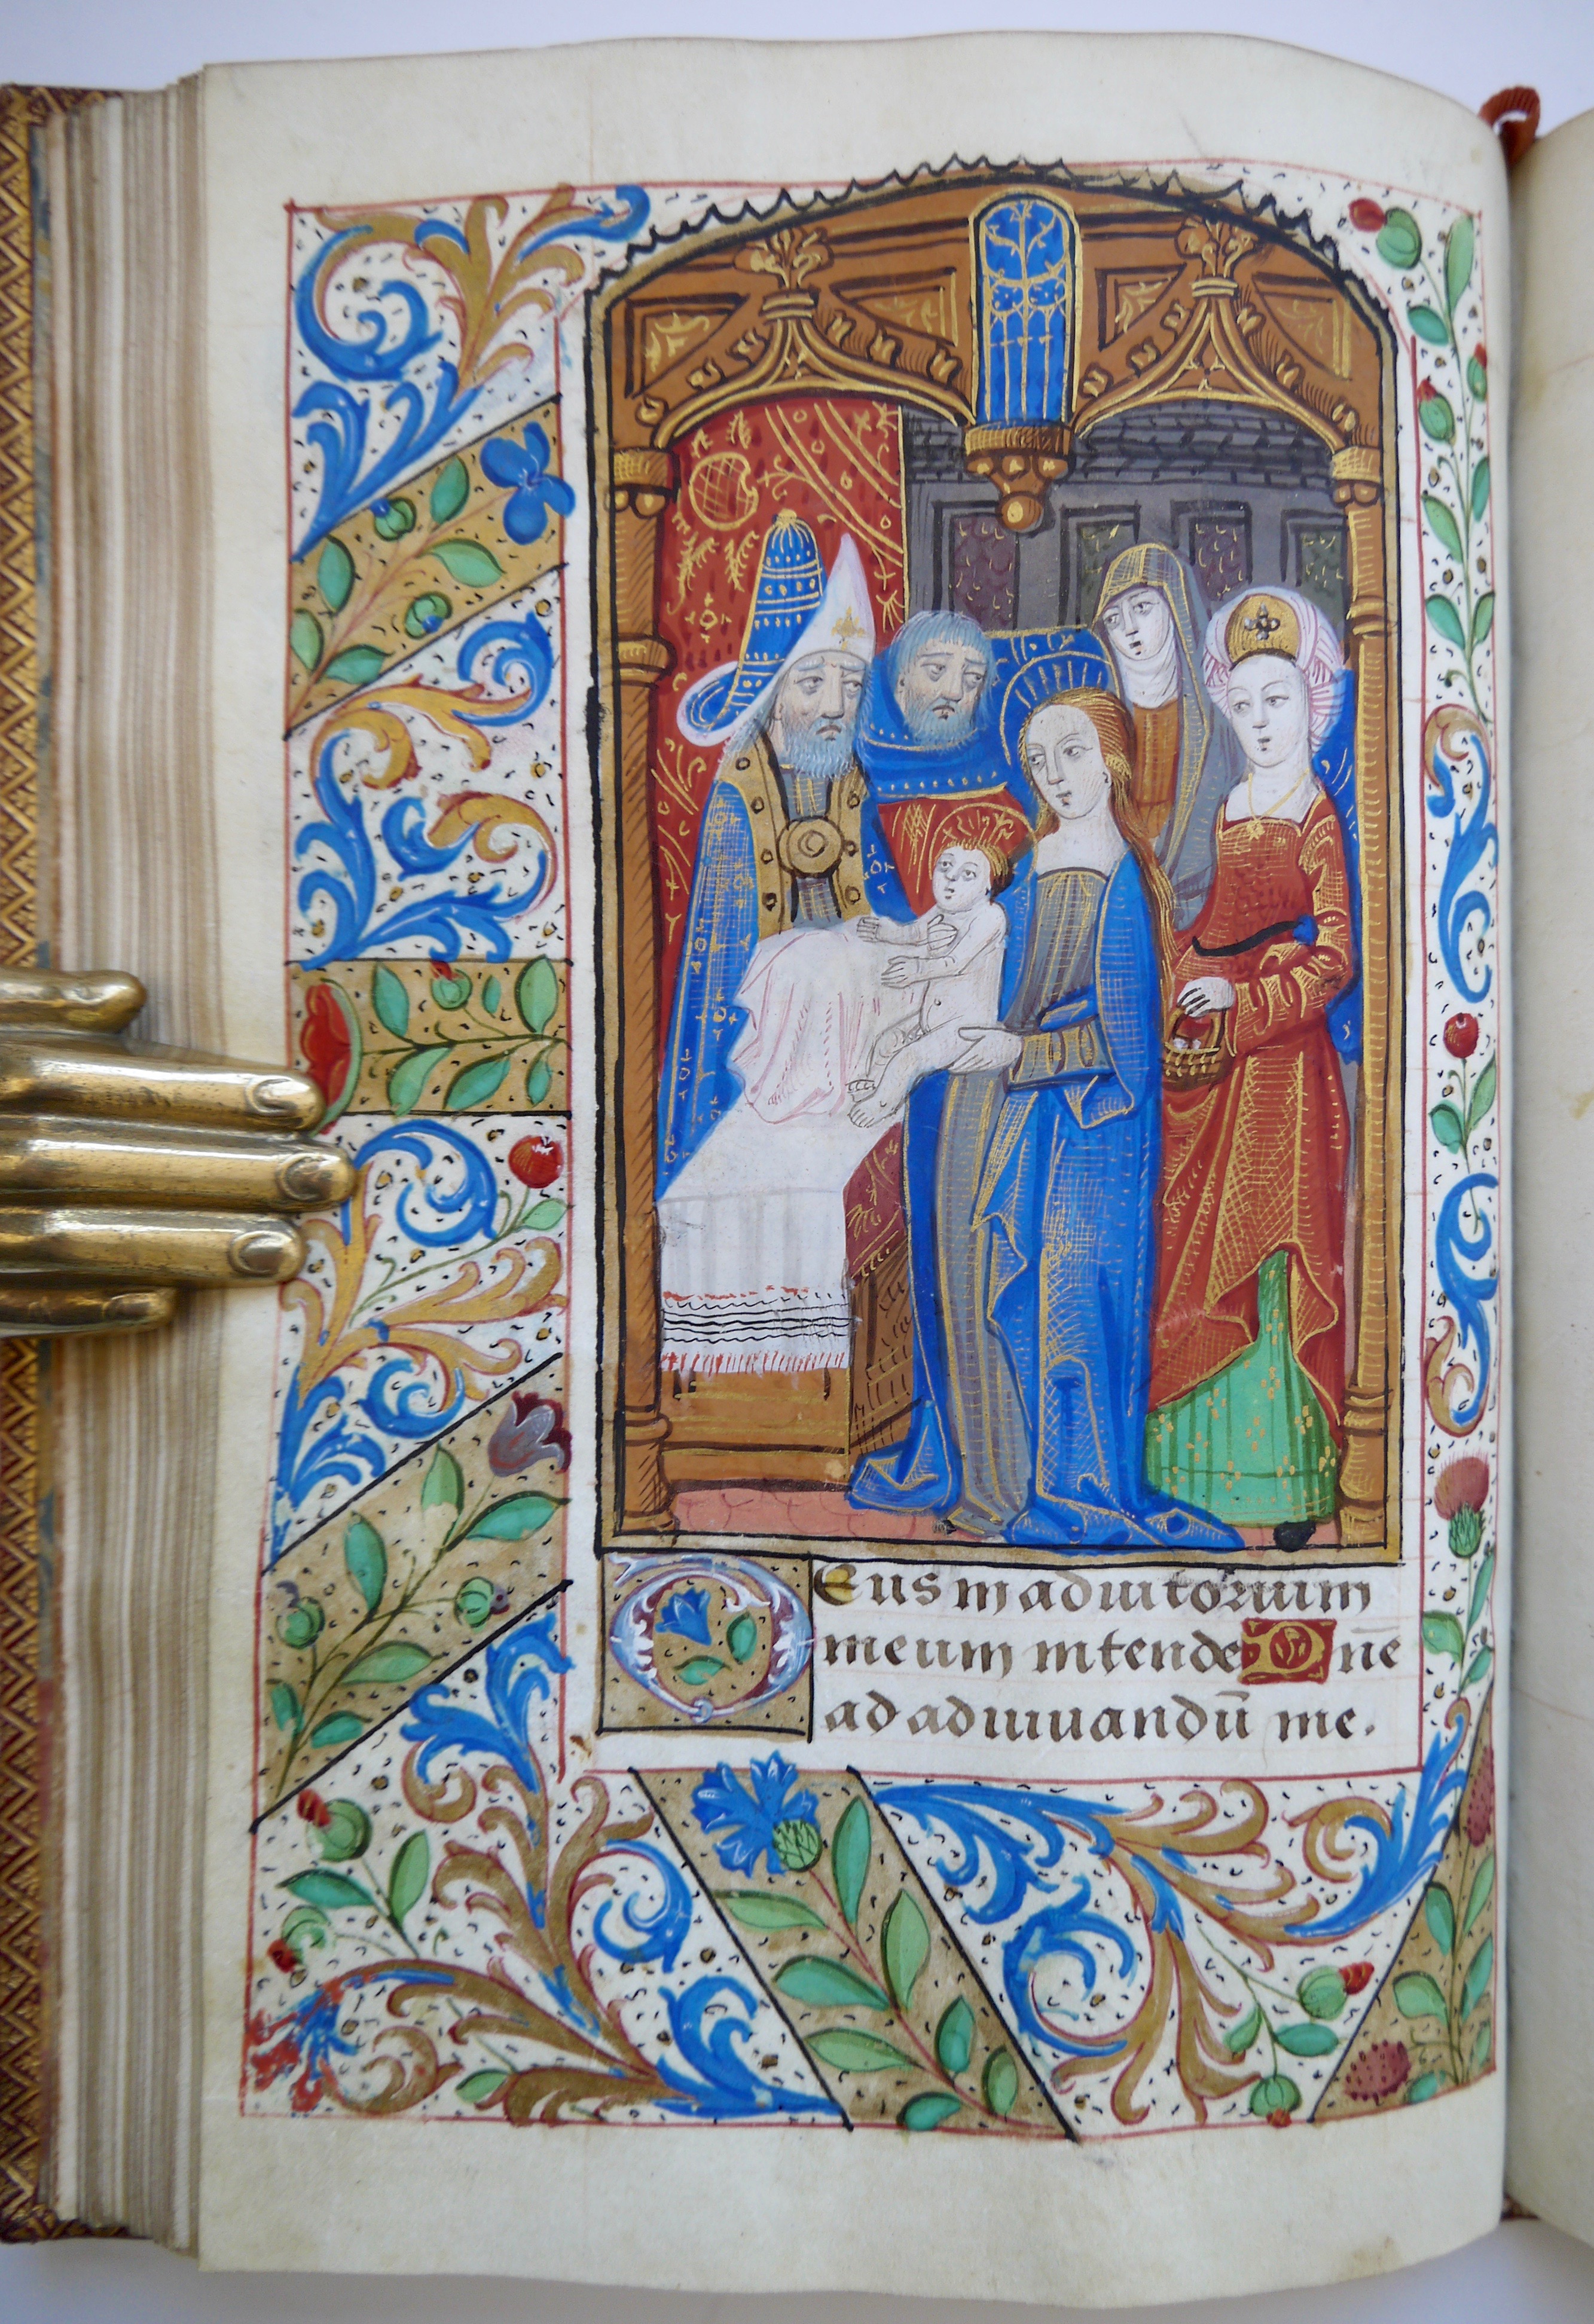 Deus in adiutorium
meum intende Dn̄e
ad adiuuandū me.